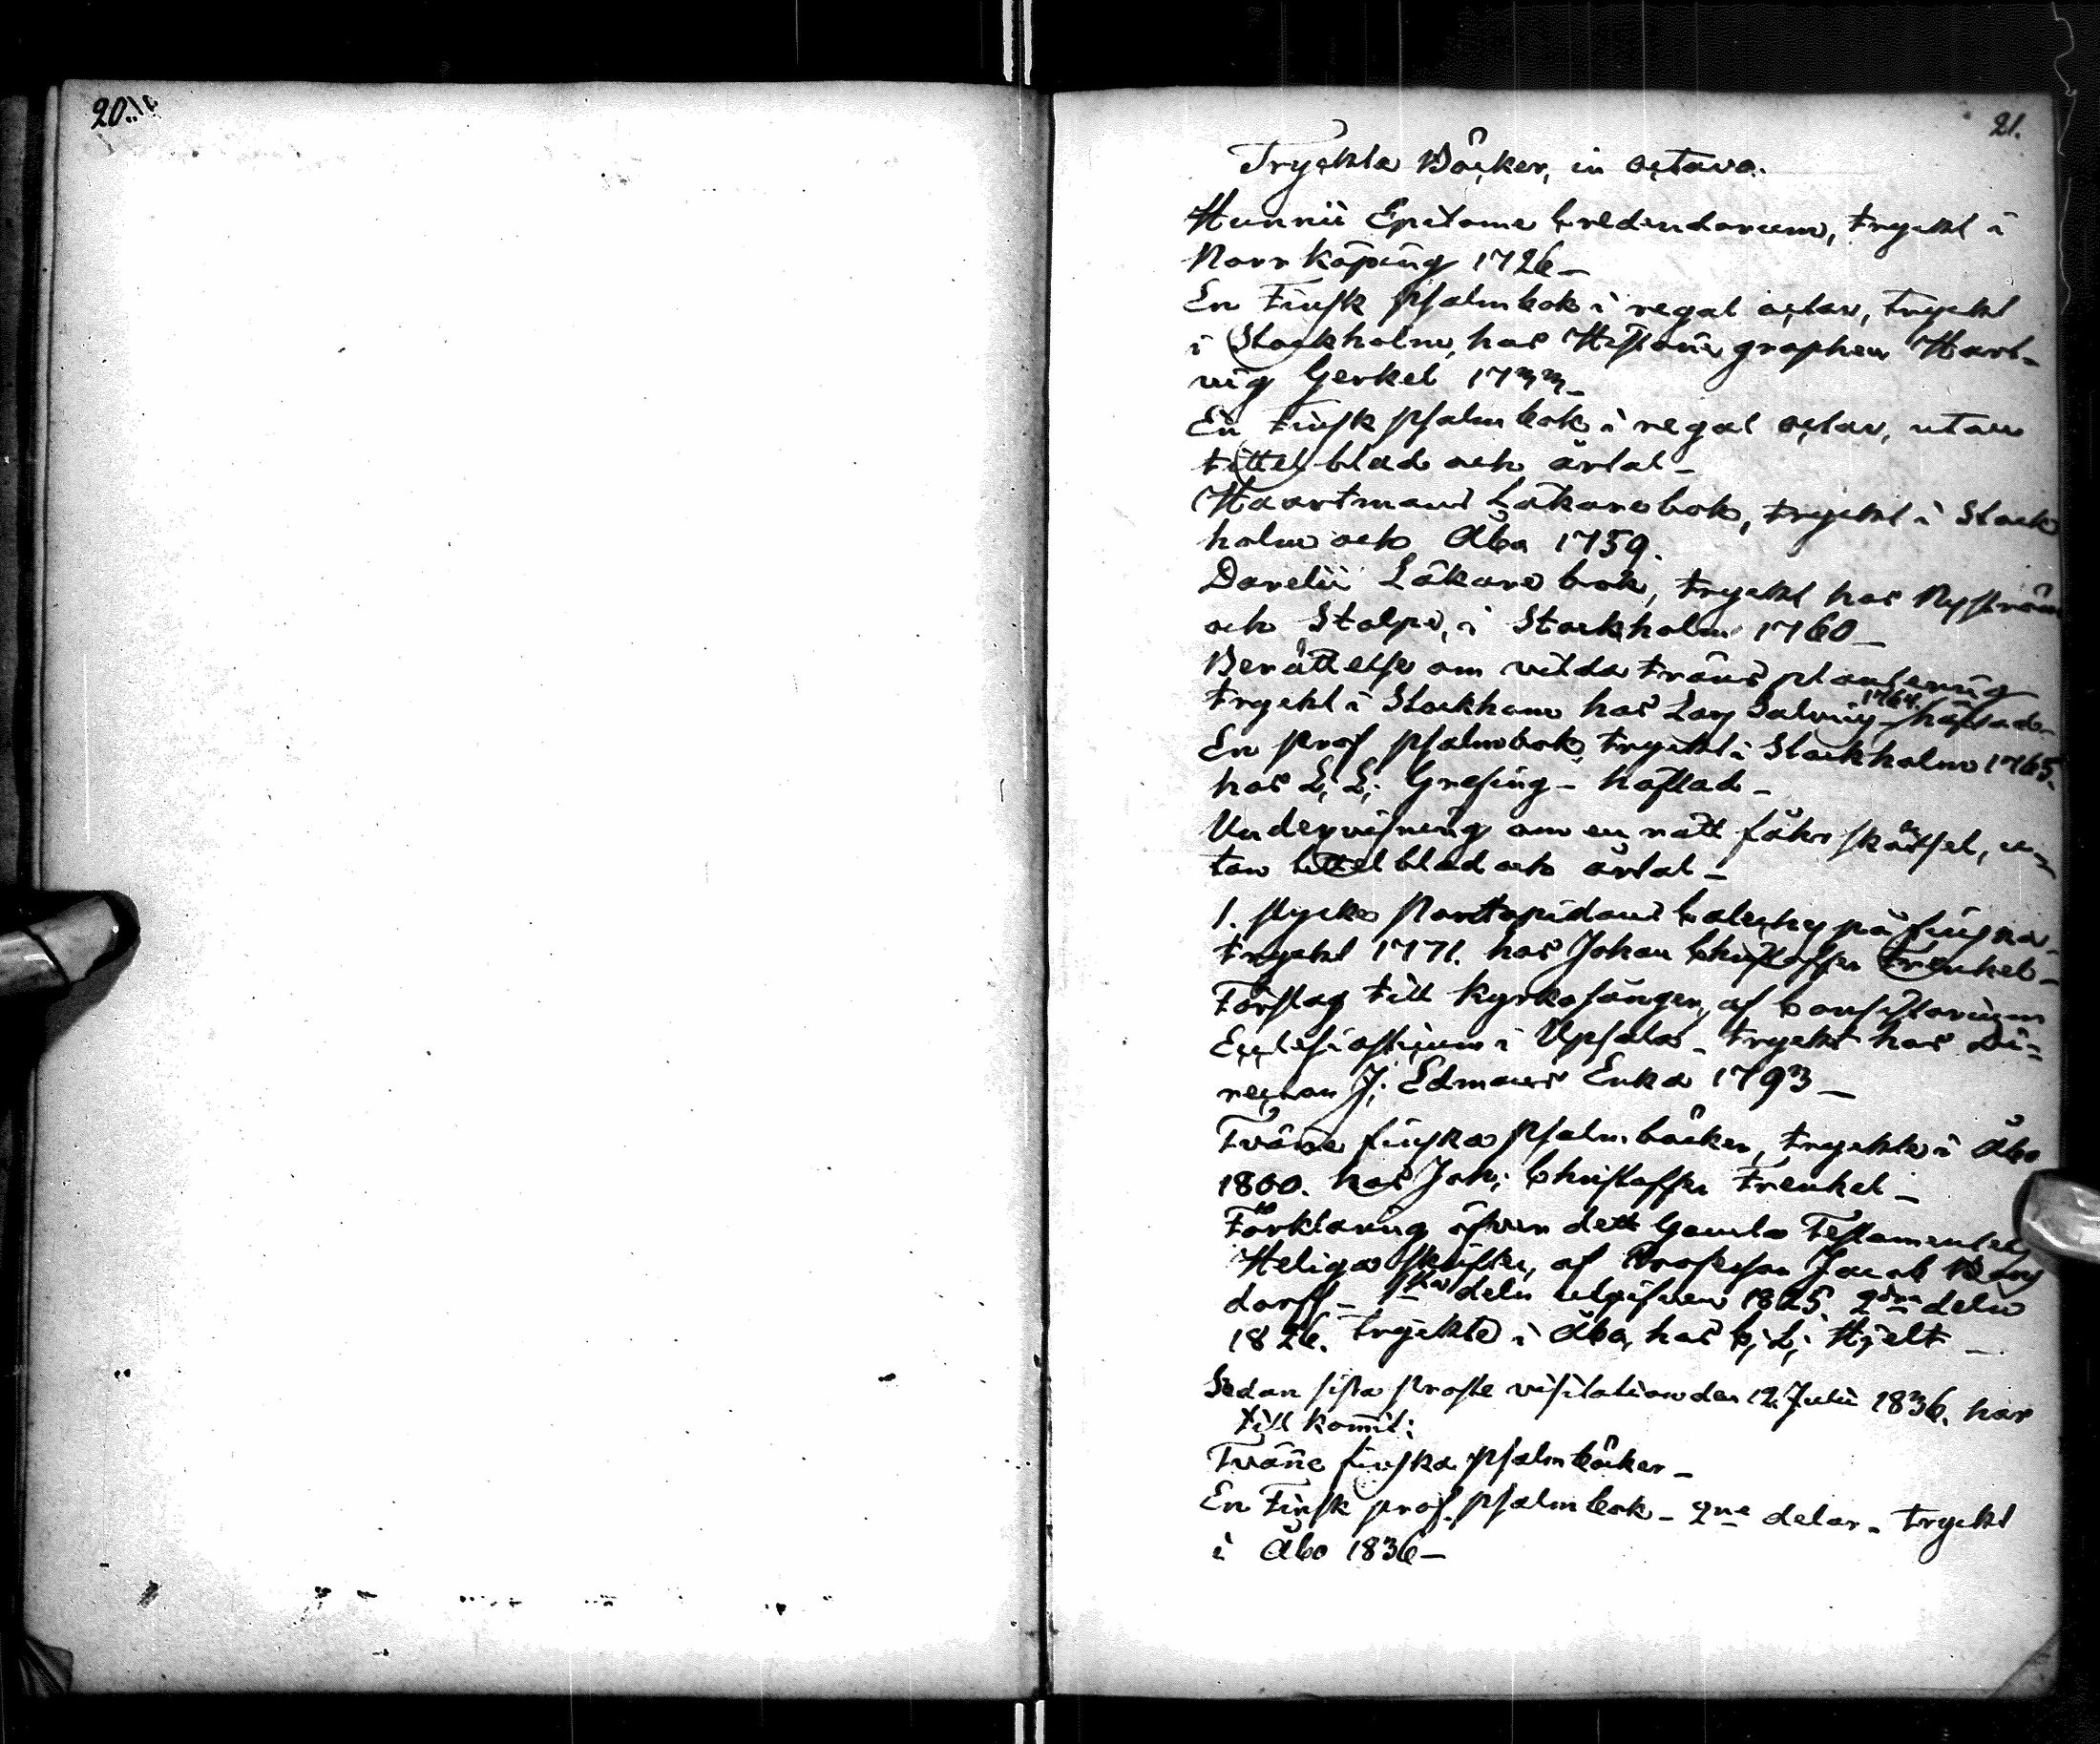 20.
21.
Tryckta Böcker, in octavo.
Hunnii Epitome Credendorum, tryckt i
Norrköping 1726 –
En Finsk Psalmbok i regal octav, tryckt
i Stockholm, hos Historiographen Hart-
vig Gerkel 1733 –
En Finsk psalmbok i regal octav, utan
tittelblad och årtal –
Haartmans Läkarebok, tryckt i Stock
holm och Åbo 1759.
Darelii Läkare bok, tryckt hos Nyström
och Stolpe, i Stockholm 1760 –
Berättelse om vilda träns plantering
tryckt i Stockhom hos Lars Salvius 1764. – häftad –
En prof psalmbok, tryckt i Stockholm 1765.
hos L. L. Grefing – häftad –
Undervisning om en rätt fåhr skötsel, u-
tan tittelblad och årtal –
1. stycke Pontopidans Cateches på finska –
tryckt 1771. hos Johan Christoffer Frenkel –
Förslag till Kyrkosånger, af Consistorium
Ecclesiasticum i Upsala – tryckt hos Di-
recteur J. Edmans Enka 1793 –
Tväne finska Psalmböcker, tryckte i Åbo
1800. hos Joh. Christoffer Frenkel –
Förklaring öfver dett Gamla Testamentets
Heliga Skrifter, af Professor Jacob Bons
dorff – 1sta delen utgifven 1825. 2dra delen
1826. tryckte i Åbo, hos C. L. Hjelt –
Sedan sista Proste visitation den 12. Julii 1836. har
till kom̅it:
Tväne finska psalmböcker –
En Finsk prof. psalmbok – 2ne delar – tryckt
i Åbo 1836 –